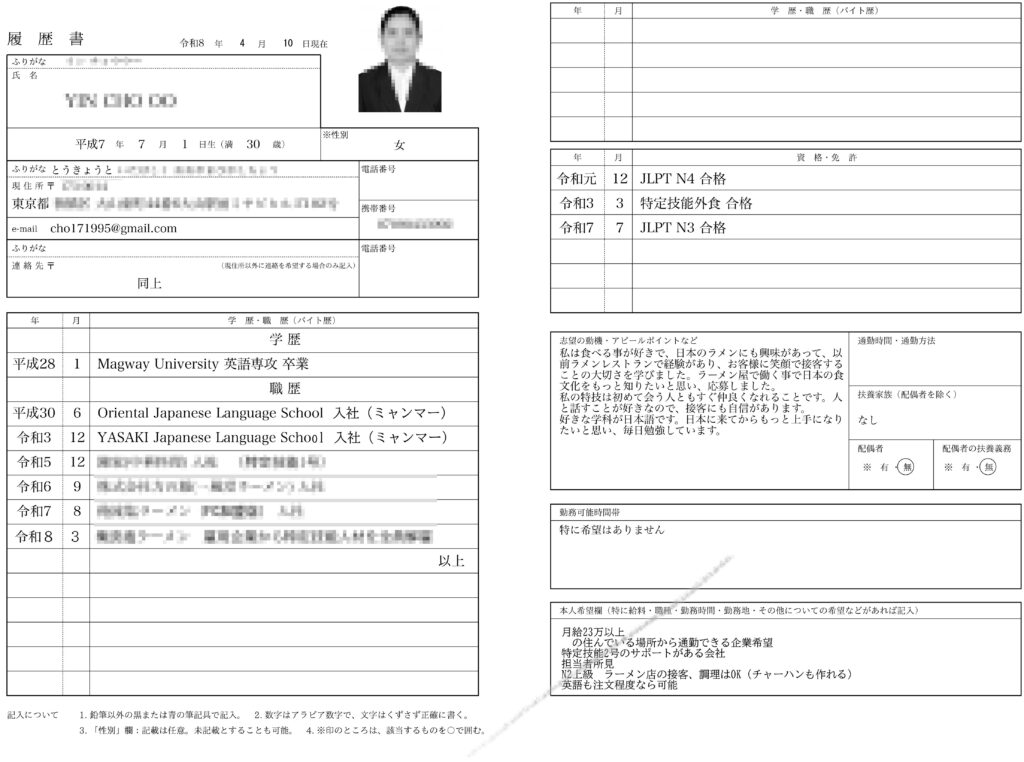 履 歴 書
令和8 年 4 月 10 日現在
ふりがな
氏 名
YIN CHO OO
平成7 年 7 月 1 日生（満 30 歳）
※性別
女
ふりがな とうきょうと
現 住 所 〒
東京都
e-mail cho171995@gmail.com
電話番号
携帯番号
ふりがな
連 絡 先 〒
（現住所以外に連絡を希望する場合のみ記入）
同上
電話番号
年 月 学 歴・職 歴（バイト歴）
学 歴
平成28 1 Magway University 英語専攻 卒業
職 歴
平成30 6 Oriental Japanese Language School 入社（ミャンマー）
令和3 12 YASAKI Japanese Language School 入社（ミャンマー）
令和5 12
令和6 9
令和7 8
令和８ 3
以上
記入について 1. 鉛筆以外の黒または青の筆記具で記入。 2. 数字はアラビア数字で、文字はくずさず正確に書く。
3. 「性別」欄：記載は任意。未記載とすることも可能。 4. ※印のところは、該当するものを○で囲む。
年 月 学 歴・職 歴（バイト歴）
年 月 資 格・免 許
令和元 12 JLPT N4 合格
令和3 3 特定技能外食 合格
令和7 7 JLPT N3 合格
志望の動機・アピールポイントなど
私は食べる事が好きで、日本のラメンにも興味があって、以
前ラメンレストランで経験があり、お客様に笑顔で接客する
ことの大切さを学びました。ラーメン屋で働く事で日本の食
文化をもっと知りたいと思い、応募しました。
私の特技は初めて会う人ともすぐ仲良くなれることです。人
と話すことが好きなので、接客にも自信があります。
好きな学科が日本語です。日本に来てからもっと上手になり
たいと思い、毎日勉強しています。
通勤時間・通勤方法
扶養家族（配偶者を除く）
なし
配偶者
※ 有 ・ 無
配偶者の扶養義務
※ 有 ・ 無
勤務可能時間帯
特に希望はありません
本人希望欄（特に給料・職種・勤務時間・勤務地・その他についての希望などがあれば記入）
月給23万以上
の住んでいる場所から通勤できる企業希望
特定技能2号のサポートがある会社
担当者所見
N2上級 ラーメン店の接客、調理はOK（チャーハンも作れる）
英語も注文程度なら可能